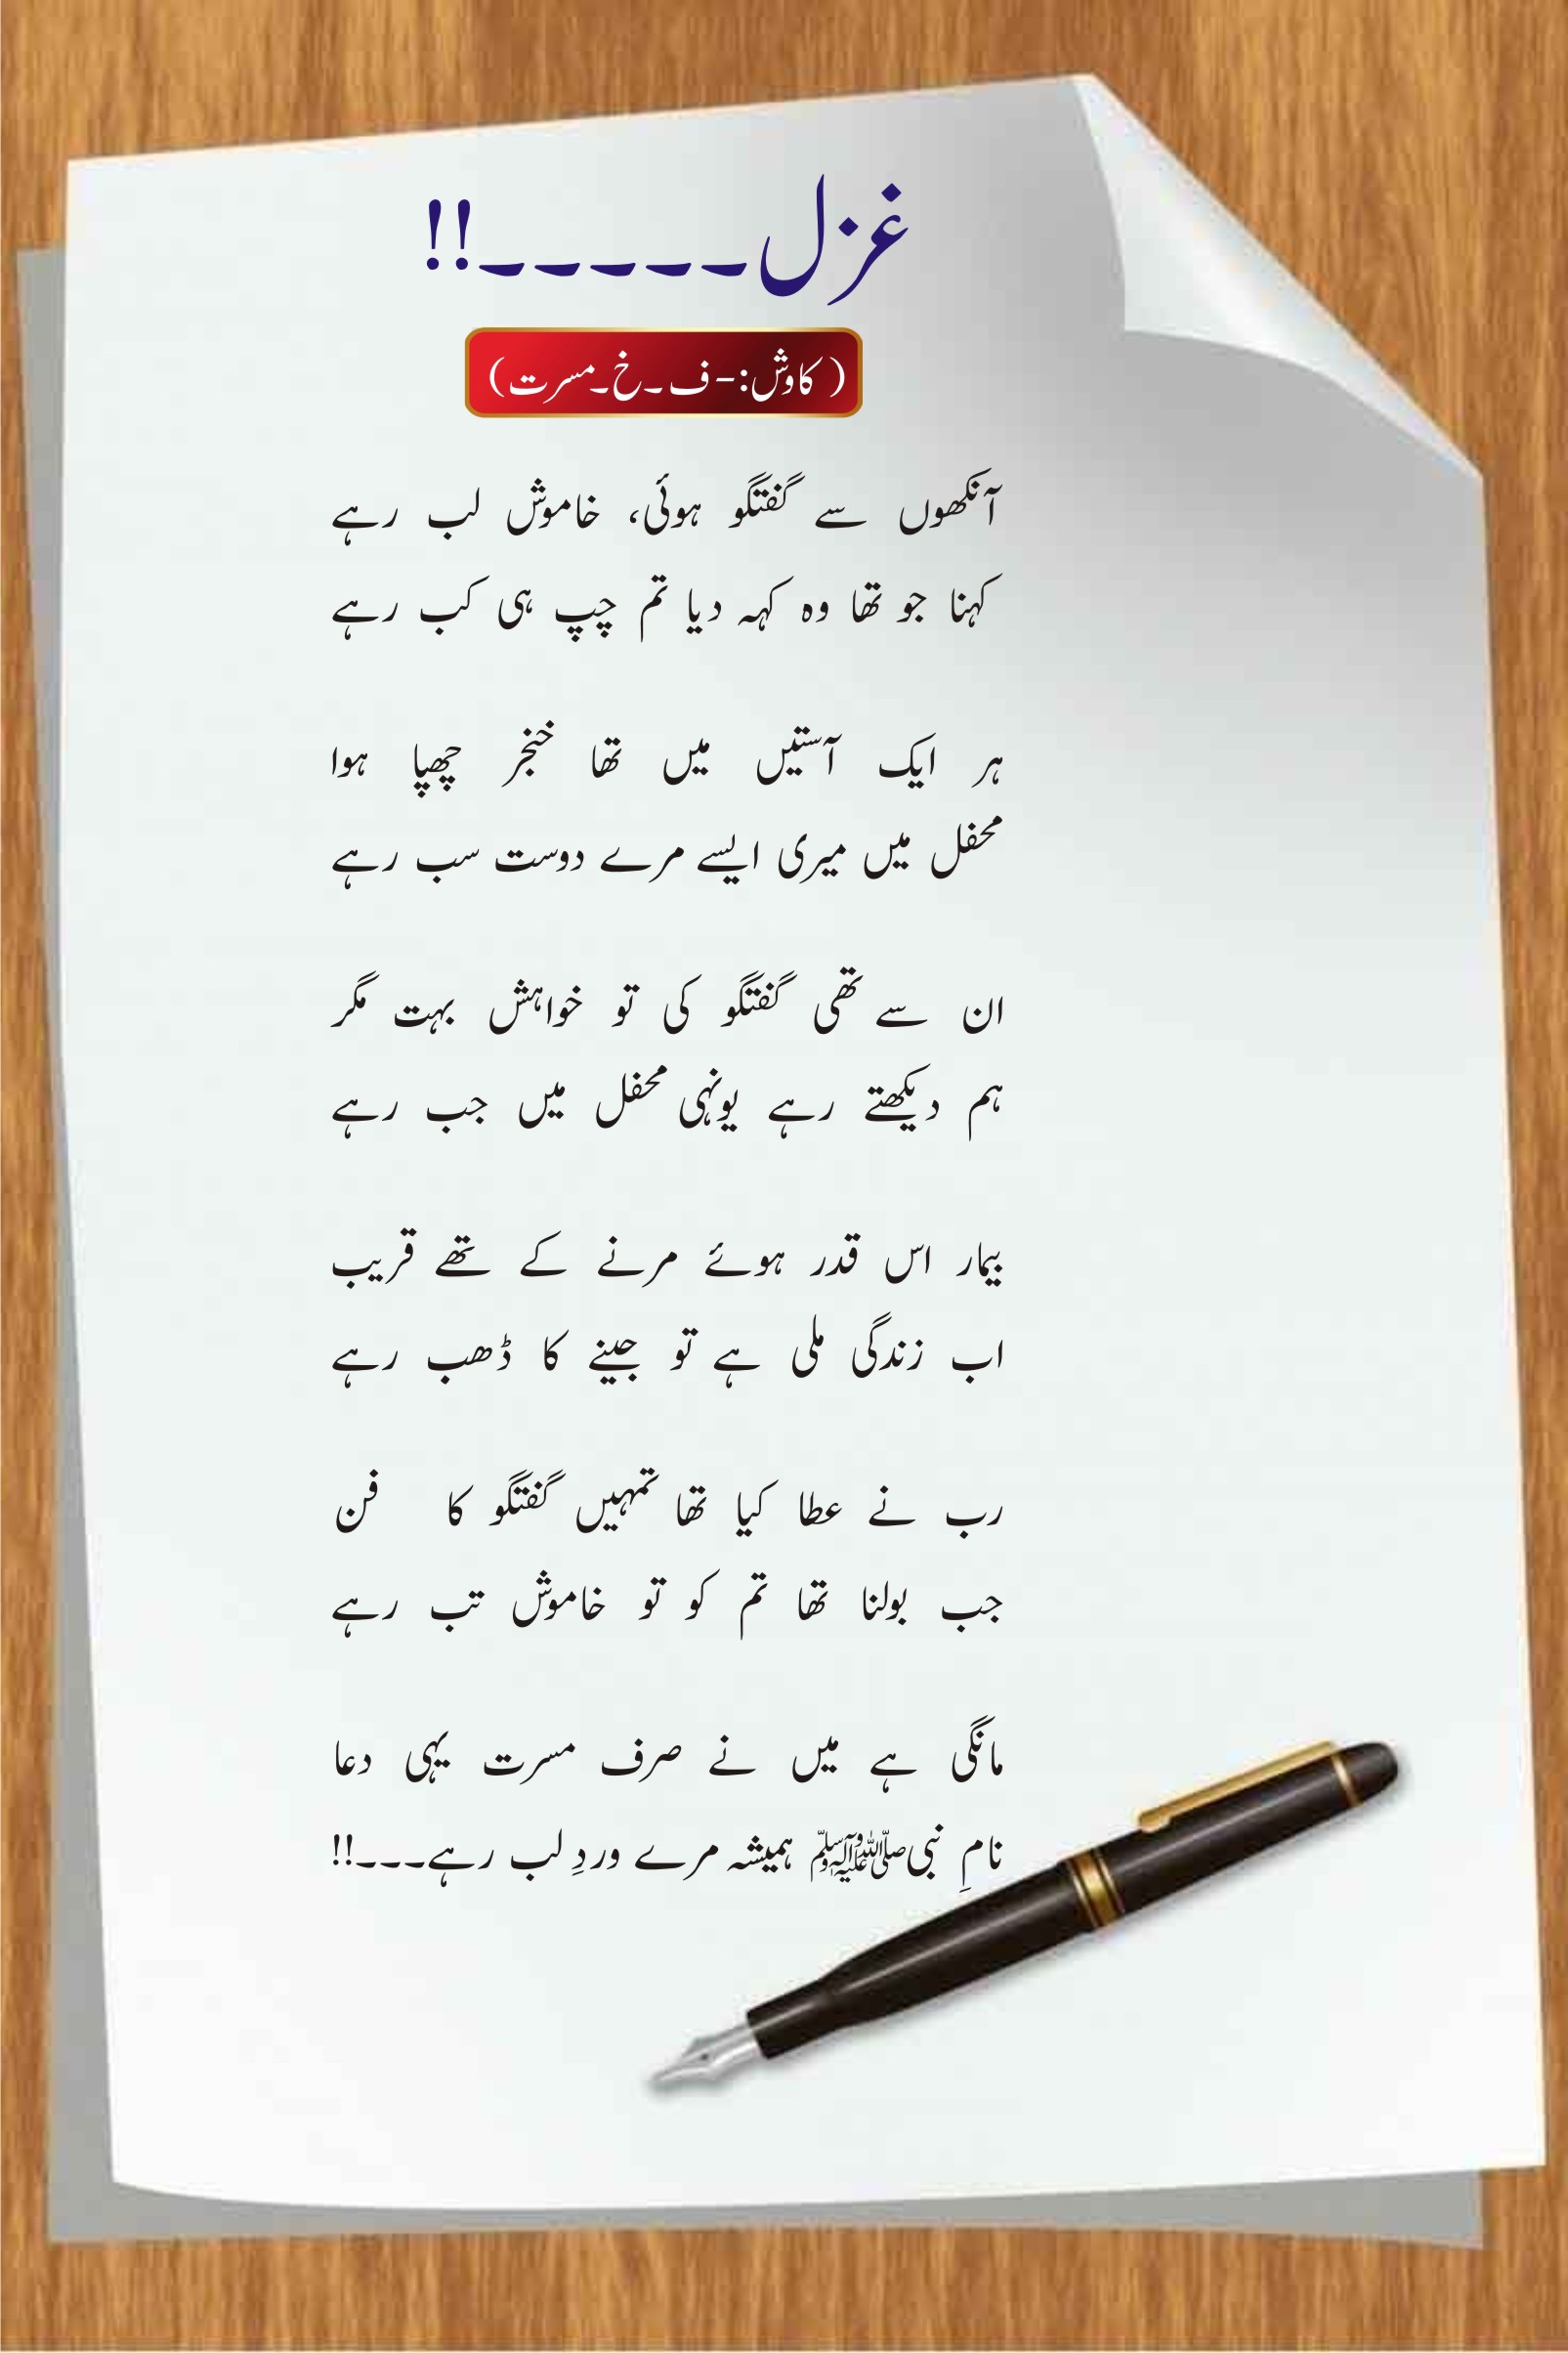 غزل۔۔۔۔۔!!
(کاوش:-ف۔خ۔مسرت)
آنکھوں سے گفتگو ہوئی، خاموش لب رہے
کہنا جو تھا وہ کہہ دیا تم چپ ہی کب رہے
ہر ایک آستیں میں تھا خنجر چھپا ہوا
محفل میں میری ایسے مرے دوست سب رہے
ان سے تھی گفتگو کی تو خواہش بہت مگر
ہم دیکھتے رہے یونہی محفل میں جب رہے
بیمار اس قدر ہوئے مرنے کے تھے قریب
اب زندگی ملی ہے تو جینے کا ڈھب رہے
رب نے عطا کیا تھا تمہیں گفتگو کا فن
جب بولنا تھا تم کو تو خاموش تب رہے
مانگی ہے میں نے صرف مسرت یہی دعا
نامِ نبیﷺ ہمیشہ مرے وردِ لب رہے۔۔۔!!